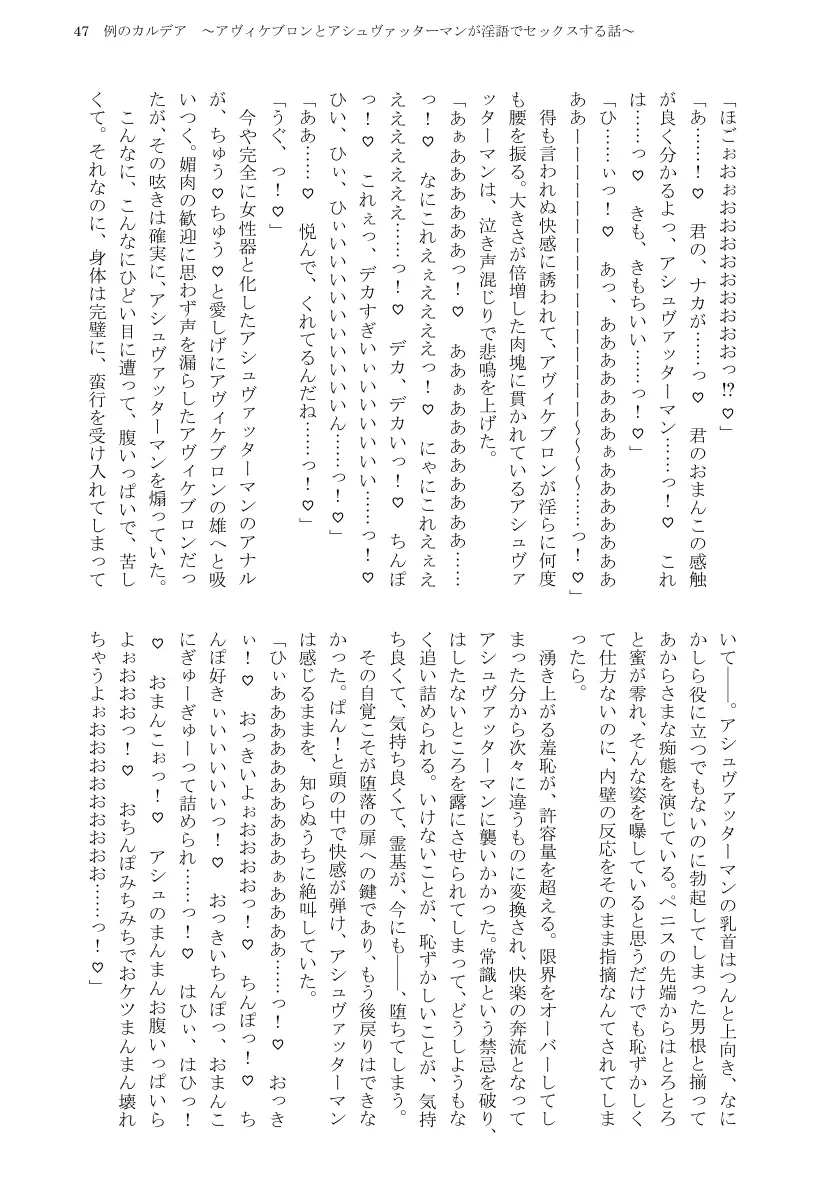 47 例のカルデア　～アヴィケブロンとアシュヴァッターマンが淫語でセックスする話～
「ほごぉおぉおおおおおおおおおっ⁉♡」
「あ……！♡　君の、ナカが……っ♡　君のおまんこの感触
が良く分かるよっ、アシュヴァッターマン……っ！♡　これ
は……っ♡　きも、きもちいい……っ！♡」
「ひ……ぃっ！♡　あっ、あああああああぁああああああ
ああーーーーーーーーーーーーーーー～～～～……っ！♡」
　得も言われぬ快感に誘われて、アヴィケブロンが淫らに何度
も腰を振る。大きさが倍増した肉塊に貫かれているアシュヴァ
ッターマンは、泣き声混じりで悲鳴を上げた。
「あぁああああああっ！♡　ああぁああああああああ……
っ！♡　なにこれえぇええええっ！♡　にゃにこれえぇえ
ええええええええ……っ！♡　デカ、デカいっ！♡　ちんぽ
っ！♡　これぇっ、デカすぎいぃいいいいいい……っ！♡
ひい、ひぃ、ひぃいいいいいいいいいいいん……っ！♡」
「ああ……♡　悦んで、くれてるんだね……っ！♡」
「うぐ、っ！♡」
　今や完全に女性器と化したアシュヴァッターマンのアナル
が、ちゅう♡ちゅう♡と愛しげにアヴィケブロンの雄へと吸
いつく。媚肉の歓迎に思わず声を漏らしたアヴィケブロンだっ
たが、その呟きは確実に、アシュヴァッターマンを煽っていた。
　こんなに、こんなにひどい目に遭って、腹いっぱいで、苦し
くて。それなのに、身体は完璧に、蛮行を受け入れてしまって
いて――。アシュヴァッターマンの乳首はつんと上向き、なに
かしら役に立つでもないのに勃起してしまった男根と揃って
あからさまな痴態を演じている。ペニスの先端からはとろとろ
と蜜が零れ、そんな姿を曝していると思うだけでも恥ずかしく
て仕方ないのに、内壁の反応をそのまま指摘なんてされてしま
ったら。
　湧き上がる羞恥が、許容量を超える。限界をオーバーしてし
まった分から次々に違うものに変換され、快楽の奔流となって
アシュヴァッターマンに襲いかかった。常識という禁忌を破り、
はしたないところを露にさせられてしまって、どうしようもな
く追い詰められる。いけないことが、恥ずかしいことが、気持
ち良くて、気持ち良くて、霊基が、今にも――、堕ちてしまう。
　その自覚こそが堕落の扉への鍵であり、もう後戻りはできな
かった。ぱん！と頭の中で快感が弾け、アシュヴァッターマン
は感じるままを、知らぬうちに絶叫していた。
「ひぃああああああああああぁああああ……っ！♡　おっき
ぃ！♡　おっきいよぉおおおおっ！♡　ちんぽっ！♡　ち
んぽ好きぃいいいいいっ！♡　おっきいちんぽっ、おまんこ
にぎゅーぎゅーって詰められ……っ！♡　はひぃ、はひっ！
♡　おまんこぉっ！♡　アシュのまんまんお腹いっぱいら
よぉおおおっ！♡　おちんぽみちみちでおケツまんまん壊れ
ちゃうよぉおおおおおおおおおお……っ！♡」